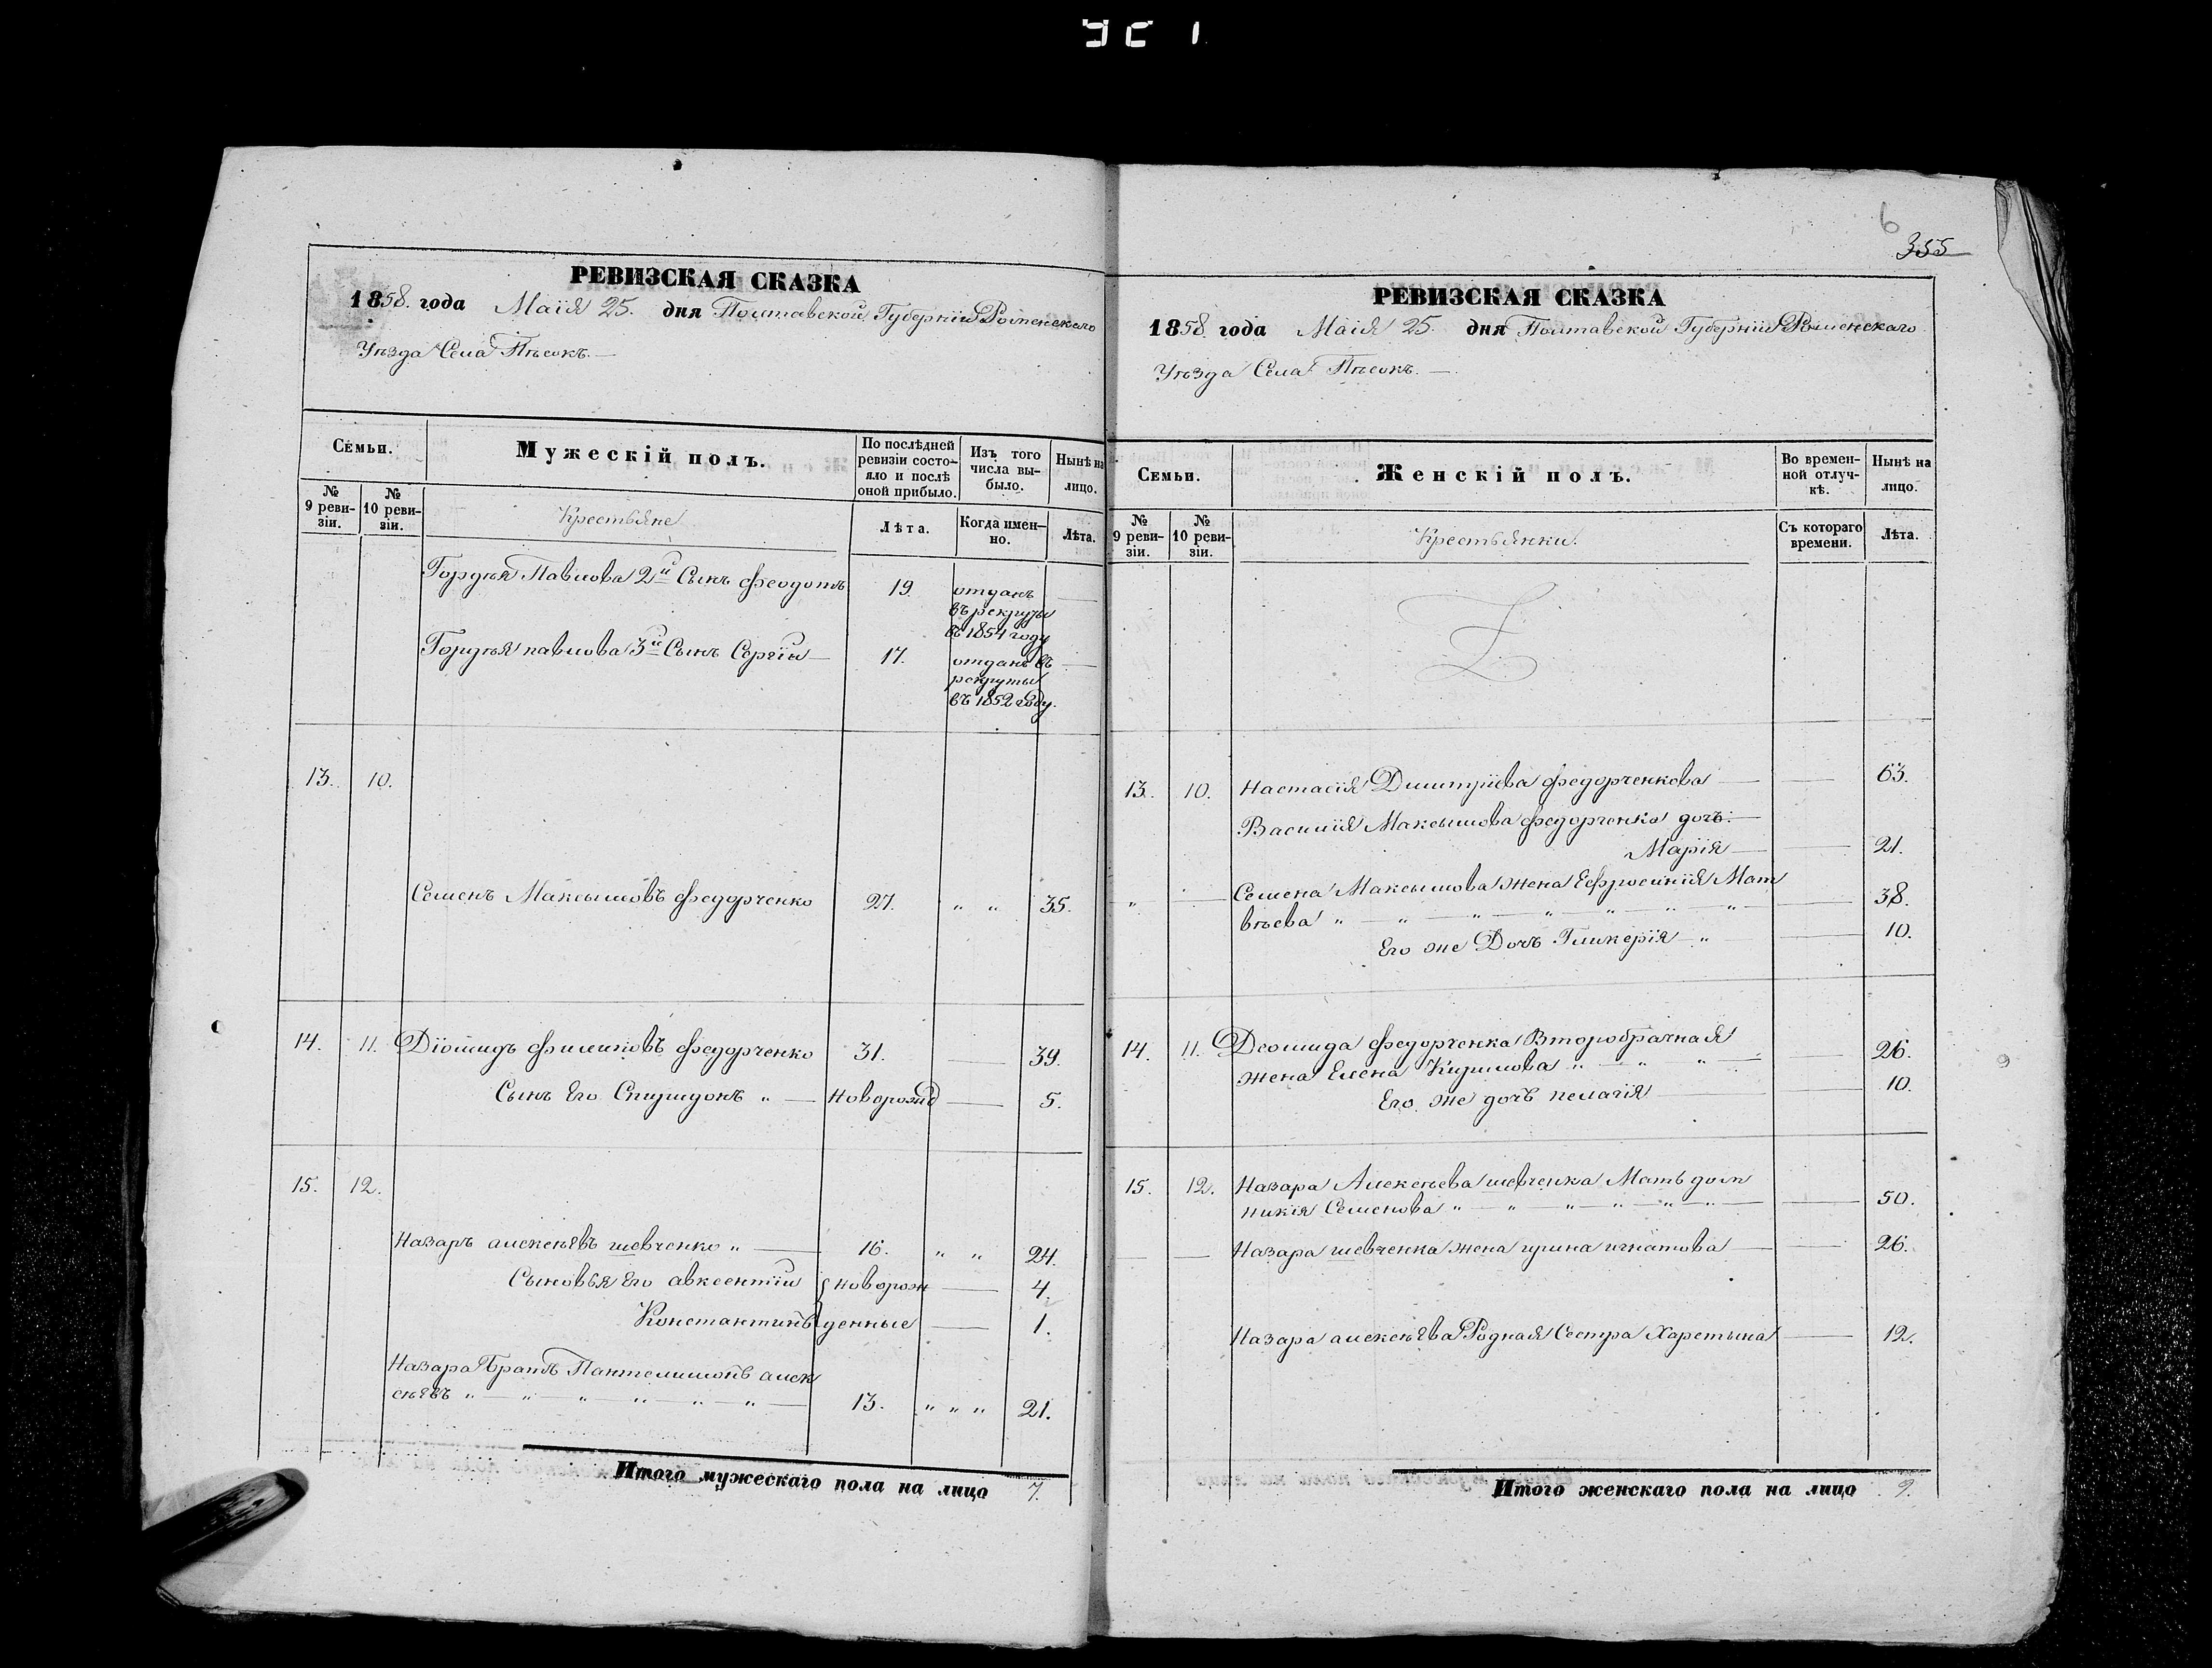 6
355
РЕВИЗСКАЯ СКАЗКА
1858. года Маія 25. дня Полтавской Губерніи Роменскаго
Уѣзда Села Пѣсокъ.
Семьи.
Мужескій полъ.
По послѣдней ревизіи состояло и послѣ оной прибыло.
Изъ того числа выбыло.
Нынѣ на лицо.
№ 9 ревизіи.
№ 10 ревизіи.
Крестьяне
Лѣта.
Когда именно.
Лѣта.
Гордѣя Павлова 2й Сынъ Феодотъ 19. отданъ
въ рекруты
въ 1854 году
Гордѣя павлова 3й Сынъ Сергій 17. отданъ въ
рекруты
въ 1852 году.
13. 10.
Семенъ Максымовъ Федорченко 27. „ „ 35.
14. 11. Діомидъ Филиповъ Федорченко 31. 39.
Сынъ Его Спиридонъ „ Новорожд 5.
15. 12.
Назаръ алексѣевъ шевченко „ 16. „ „ 24.
Сыновья Его авксентій новорож 4.
Константинъ денные 1.
Назара Братъ Пантелимонъ алек
сѣевъ „ „ „ „ „ „ 13. „ „ „ 21.
Итого мужескаго пола на лицо 7.
РЕВИЗСКАЯ СКАЗКА
1858 года Маія 25. дня Полтавской Губерніи Роменскаго
Уѣзда Села Пѣсокъ.
Семьи.
Женскій полъ.
Во временной отлучкѣ.
Нынѣ на лицо.
№ 9 ревизіи.
№ 10 ревизіи.
Крестьянки.
Съ котораго времени.
Лѣта.
13. 10. Настасія Дмитріева Федорченкова 63.
Василія Максымова Федорченка дочь:
Марія 21.
„ Семена Максымова жена Ефросинія Мат
вѣева „ „ „ „ „ „ „ 38.
Его же Дочь Гликерія „ 10.
14. 11. Деомида Федорченка Второбрачная
жена Елена Кирилова „ „ 26.
Его же дочь пелагія 10.
15. 12. Назара Алексѣева шевченка Мать дом
никія Семенова „ „ „ „ „ „ 50.
Назара шевченка жена ирина игнатова 26.
Назара алексѣева Родная Сестра Харетына 12.
Итого женскаго пола на лицо 9.